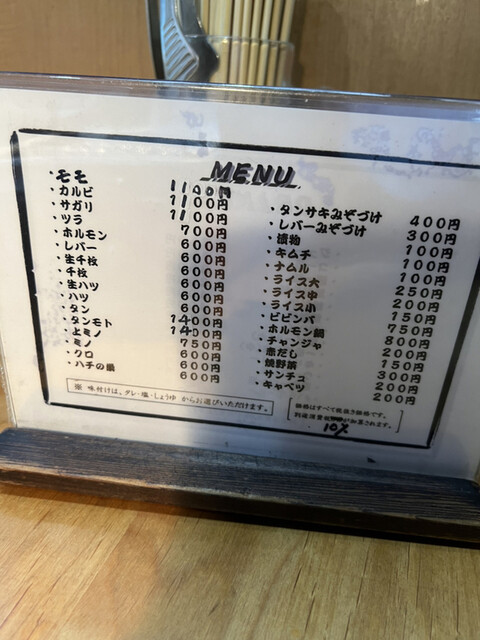 MENU
・モモ 1100円
・カルビ 1100円
・サガリ 1100円
・ツラ 700円
・ホルモン 600円
・レバー 600円
・生千枚 600円
・千枚 600円
・生ハツ 600円
・ハツ 600円
・タン 1400円
・タンモト 1400円
・上ミノ 750円
・ミノ 600円
・クロ 600円
・ハチの巣 600円
※ 味付けは、タレ・塩・しょうゆ からお選びいただけます。
・タンサキみぞづけ 400円
・レバーみぞづけ 300円
・漬物 100円
・キムチ 100円
・ナムル 100円
・ライス大 250円
・ライス中 200円
・ライス小 150円
・ビビンバ 750円
・ホルモン鍋 800円
・チャンジャ 200円
・赤だし 150円
・焼野菜 300円
・サンチュ 200円
・キャベツ 200円
価格はすべて税抜き価格です。
別途消費税 が加算されます。
10%